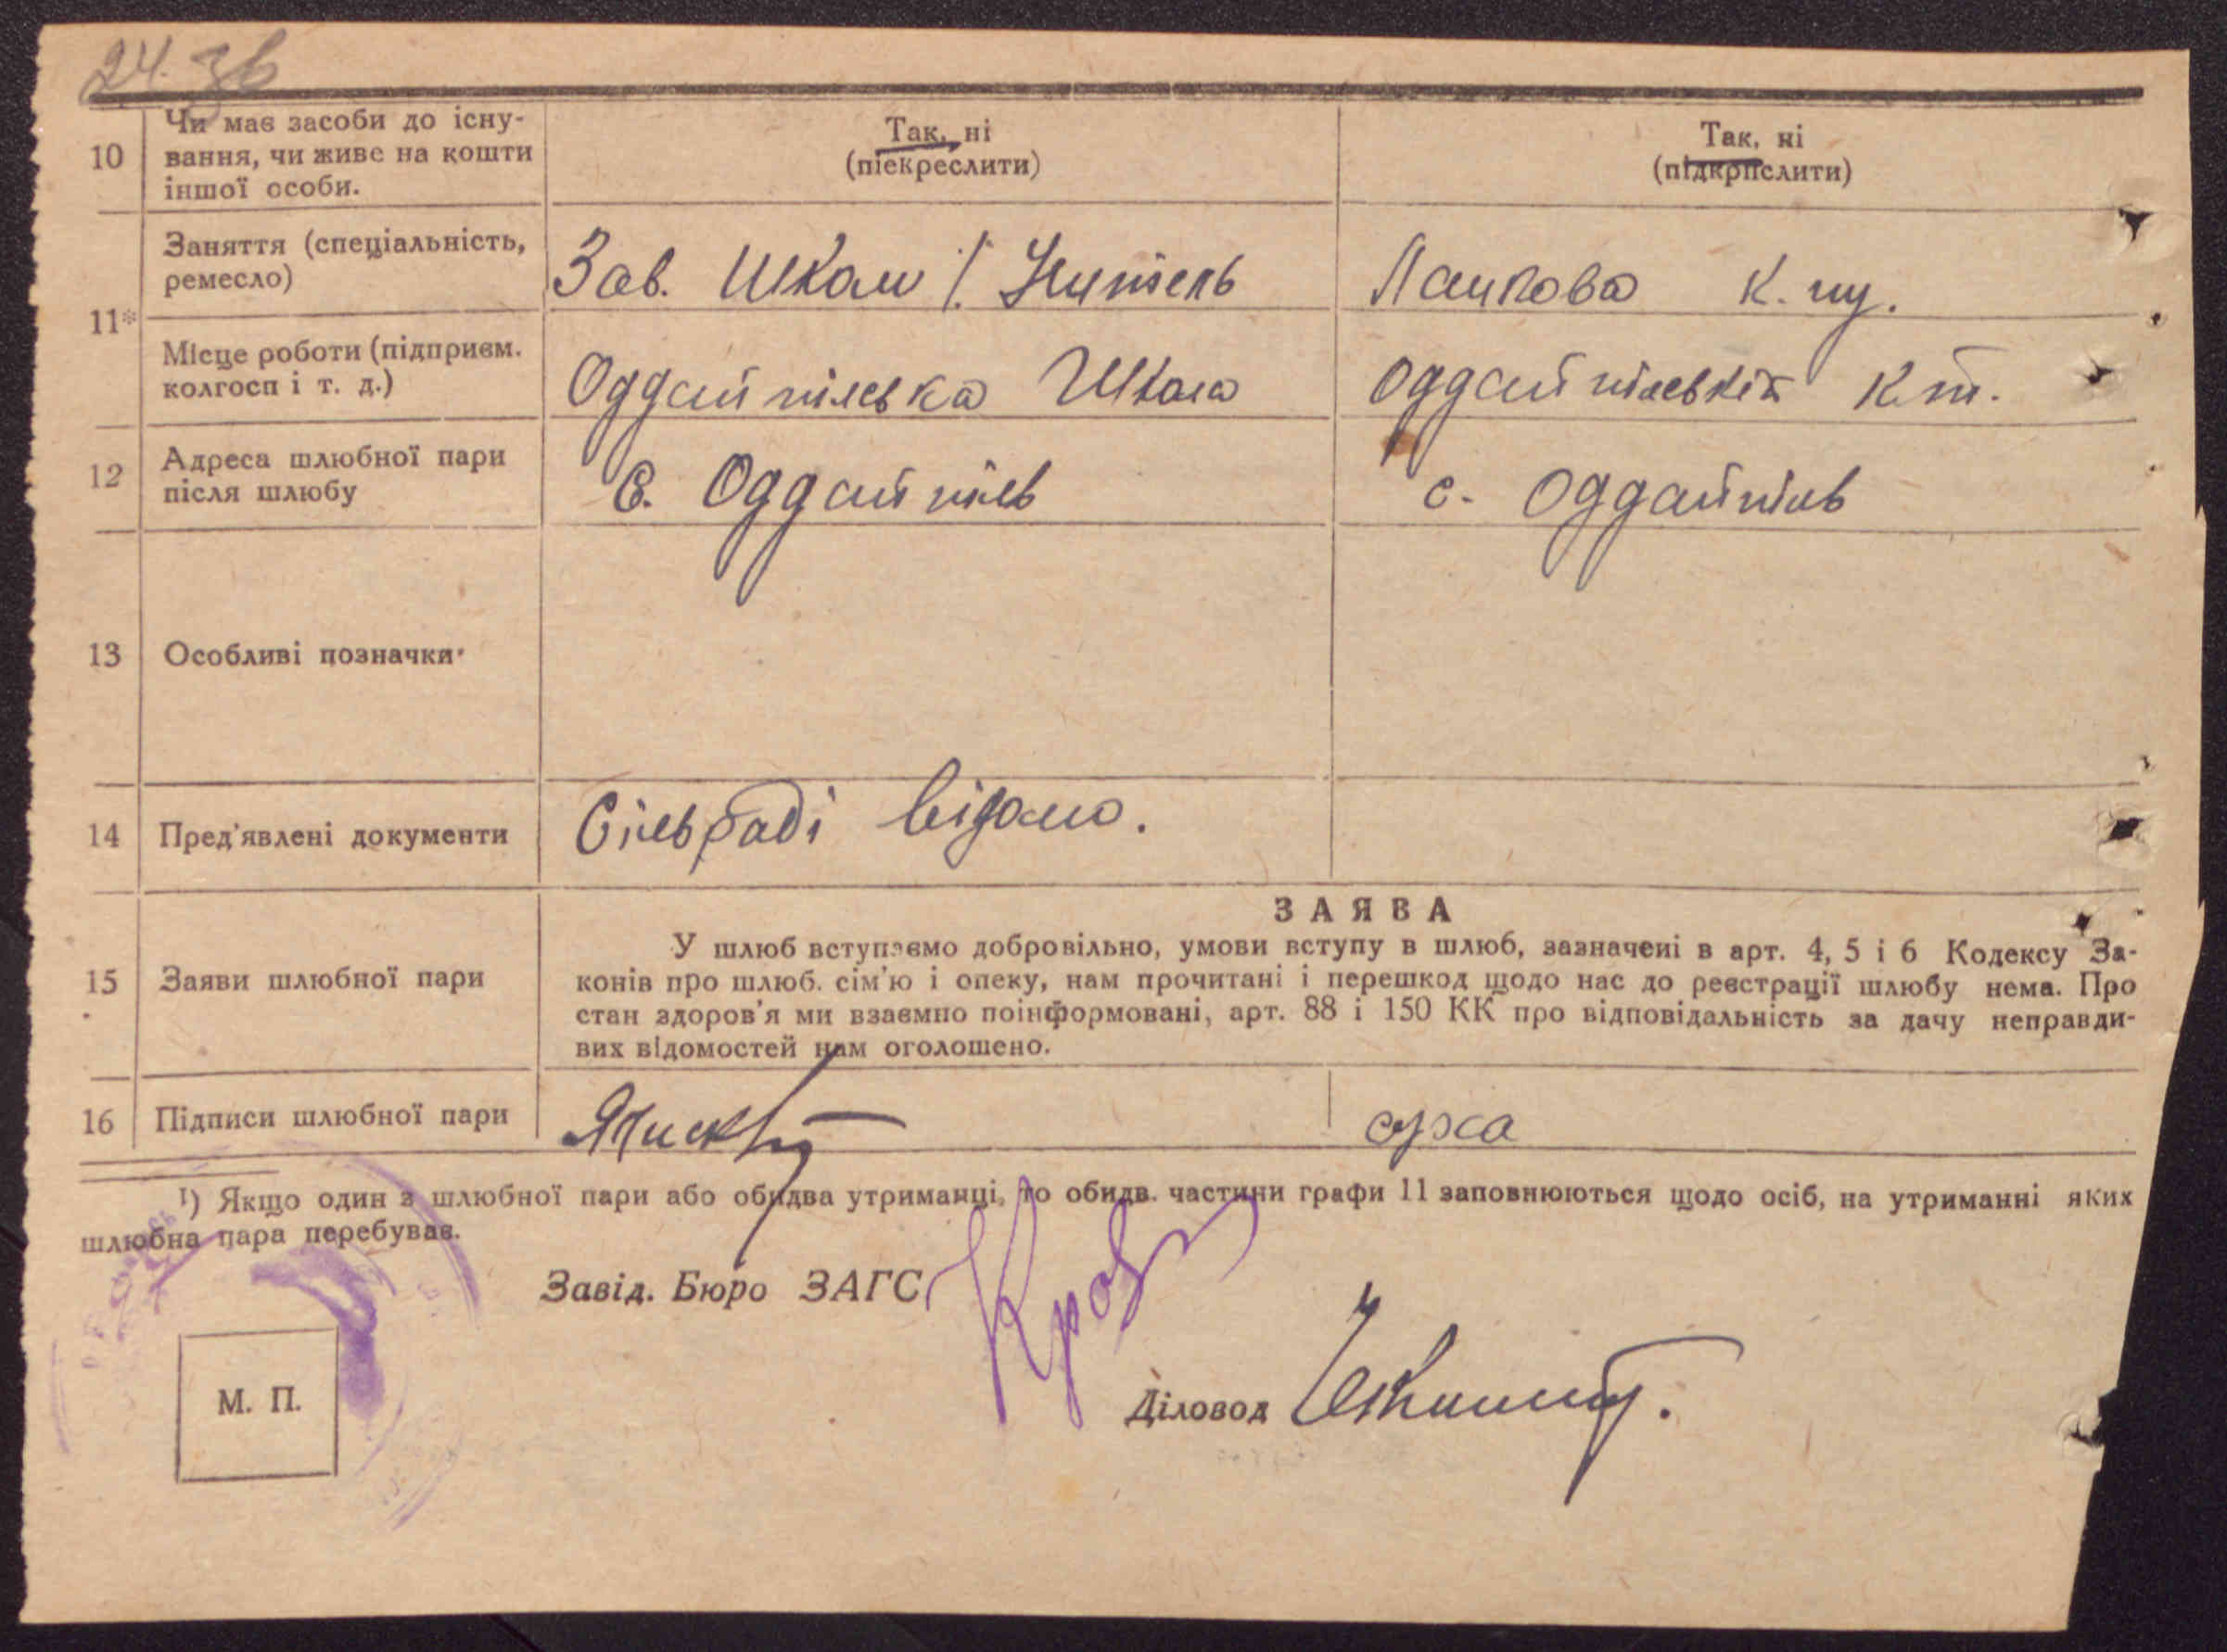 24. 36
10
Чи має засоби до існу-
вання, чи живе на кошти
іншої особи.
Так, ні
(піекреслити)
Так, ні
(підкрпслити)
11*
Заняття (спеціальність,
ремесло)
Зав. Школи /. Учитель
Ланкова к.
Місце роботи (підприєм.
колгосп і т. д.)
Оддайпілська Школа
Оддайпілський к.
12
Адреса шлюбної пари
після шлюбу
С. Оддайпіль
с. Оддайпіль
13
Особливі позначки
14
Пред'явлені документи
Сільраді відомо.
15
Заяви шлюбної пари
ЗАЯВА
У шлюб вступаємо добровільно, умови вступу в шлюб, зазначені в арт. 4, 5 і 6 Кодексу За-
конів про шлюб. сім'ю і опеку, нам прочитані і перешкод щодо нас до реєстрації шлюбу нема. Про
стан здоров'я ми взаємно поінформовані, арт. 88 і 150 КК про відповідальність за дачу неправди-
вих відомостей нам оголошено.
16
Підписи шлюбної пари
1) Якщо один з шлюбної пари або обидва утриманці, то обидв. частини графи 11 заповнюються щодо осіб, на утриманні яких
шлюбна пара перебуває.
Завід. Бюро ЗАГС
Діловод
М. П.